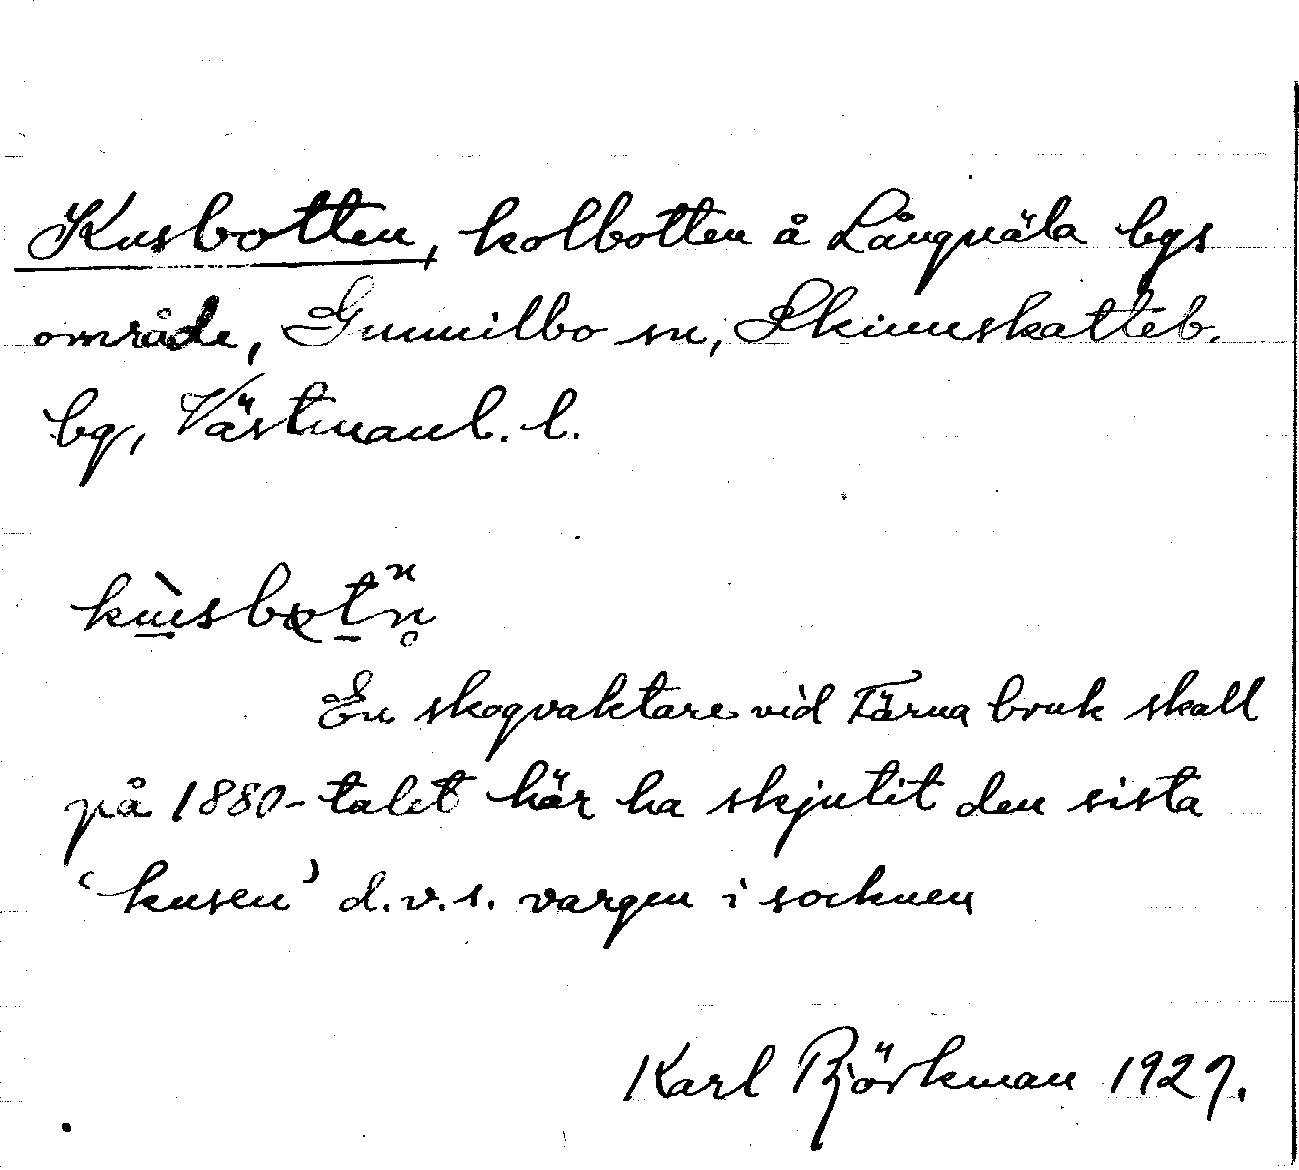 Kusbotten, kolbotten å Långnäla bgs
område, Gunnilbo sn, Skinnskatteb.
bg, Västmanl. l.
En skogvaktare vid Färna bruk skall
på 1880-talet här ha skjutit den sista
'kusen' d.v.s. vargen i socknen
Karl Björkman 1927.